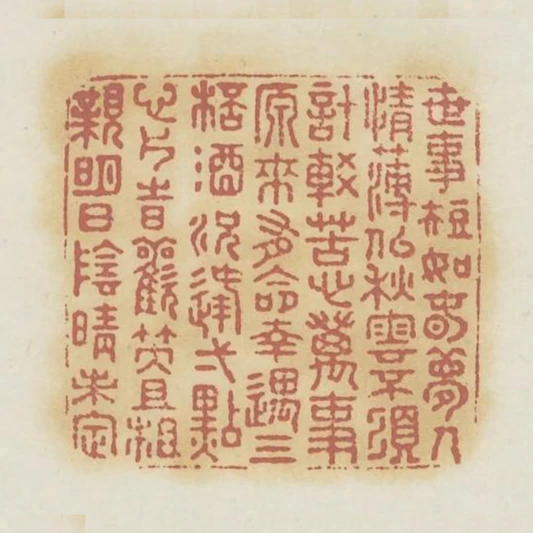 世事短如春夢人
情薄似秋雲不須
計較苦心萬事
原來有命幸遇三
桮酒況逢弌點
片旹歡笑且相
親明日陰晴未定